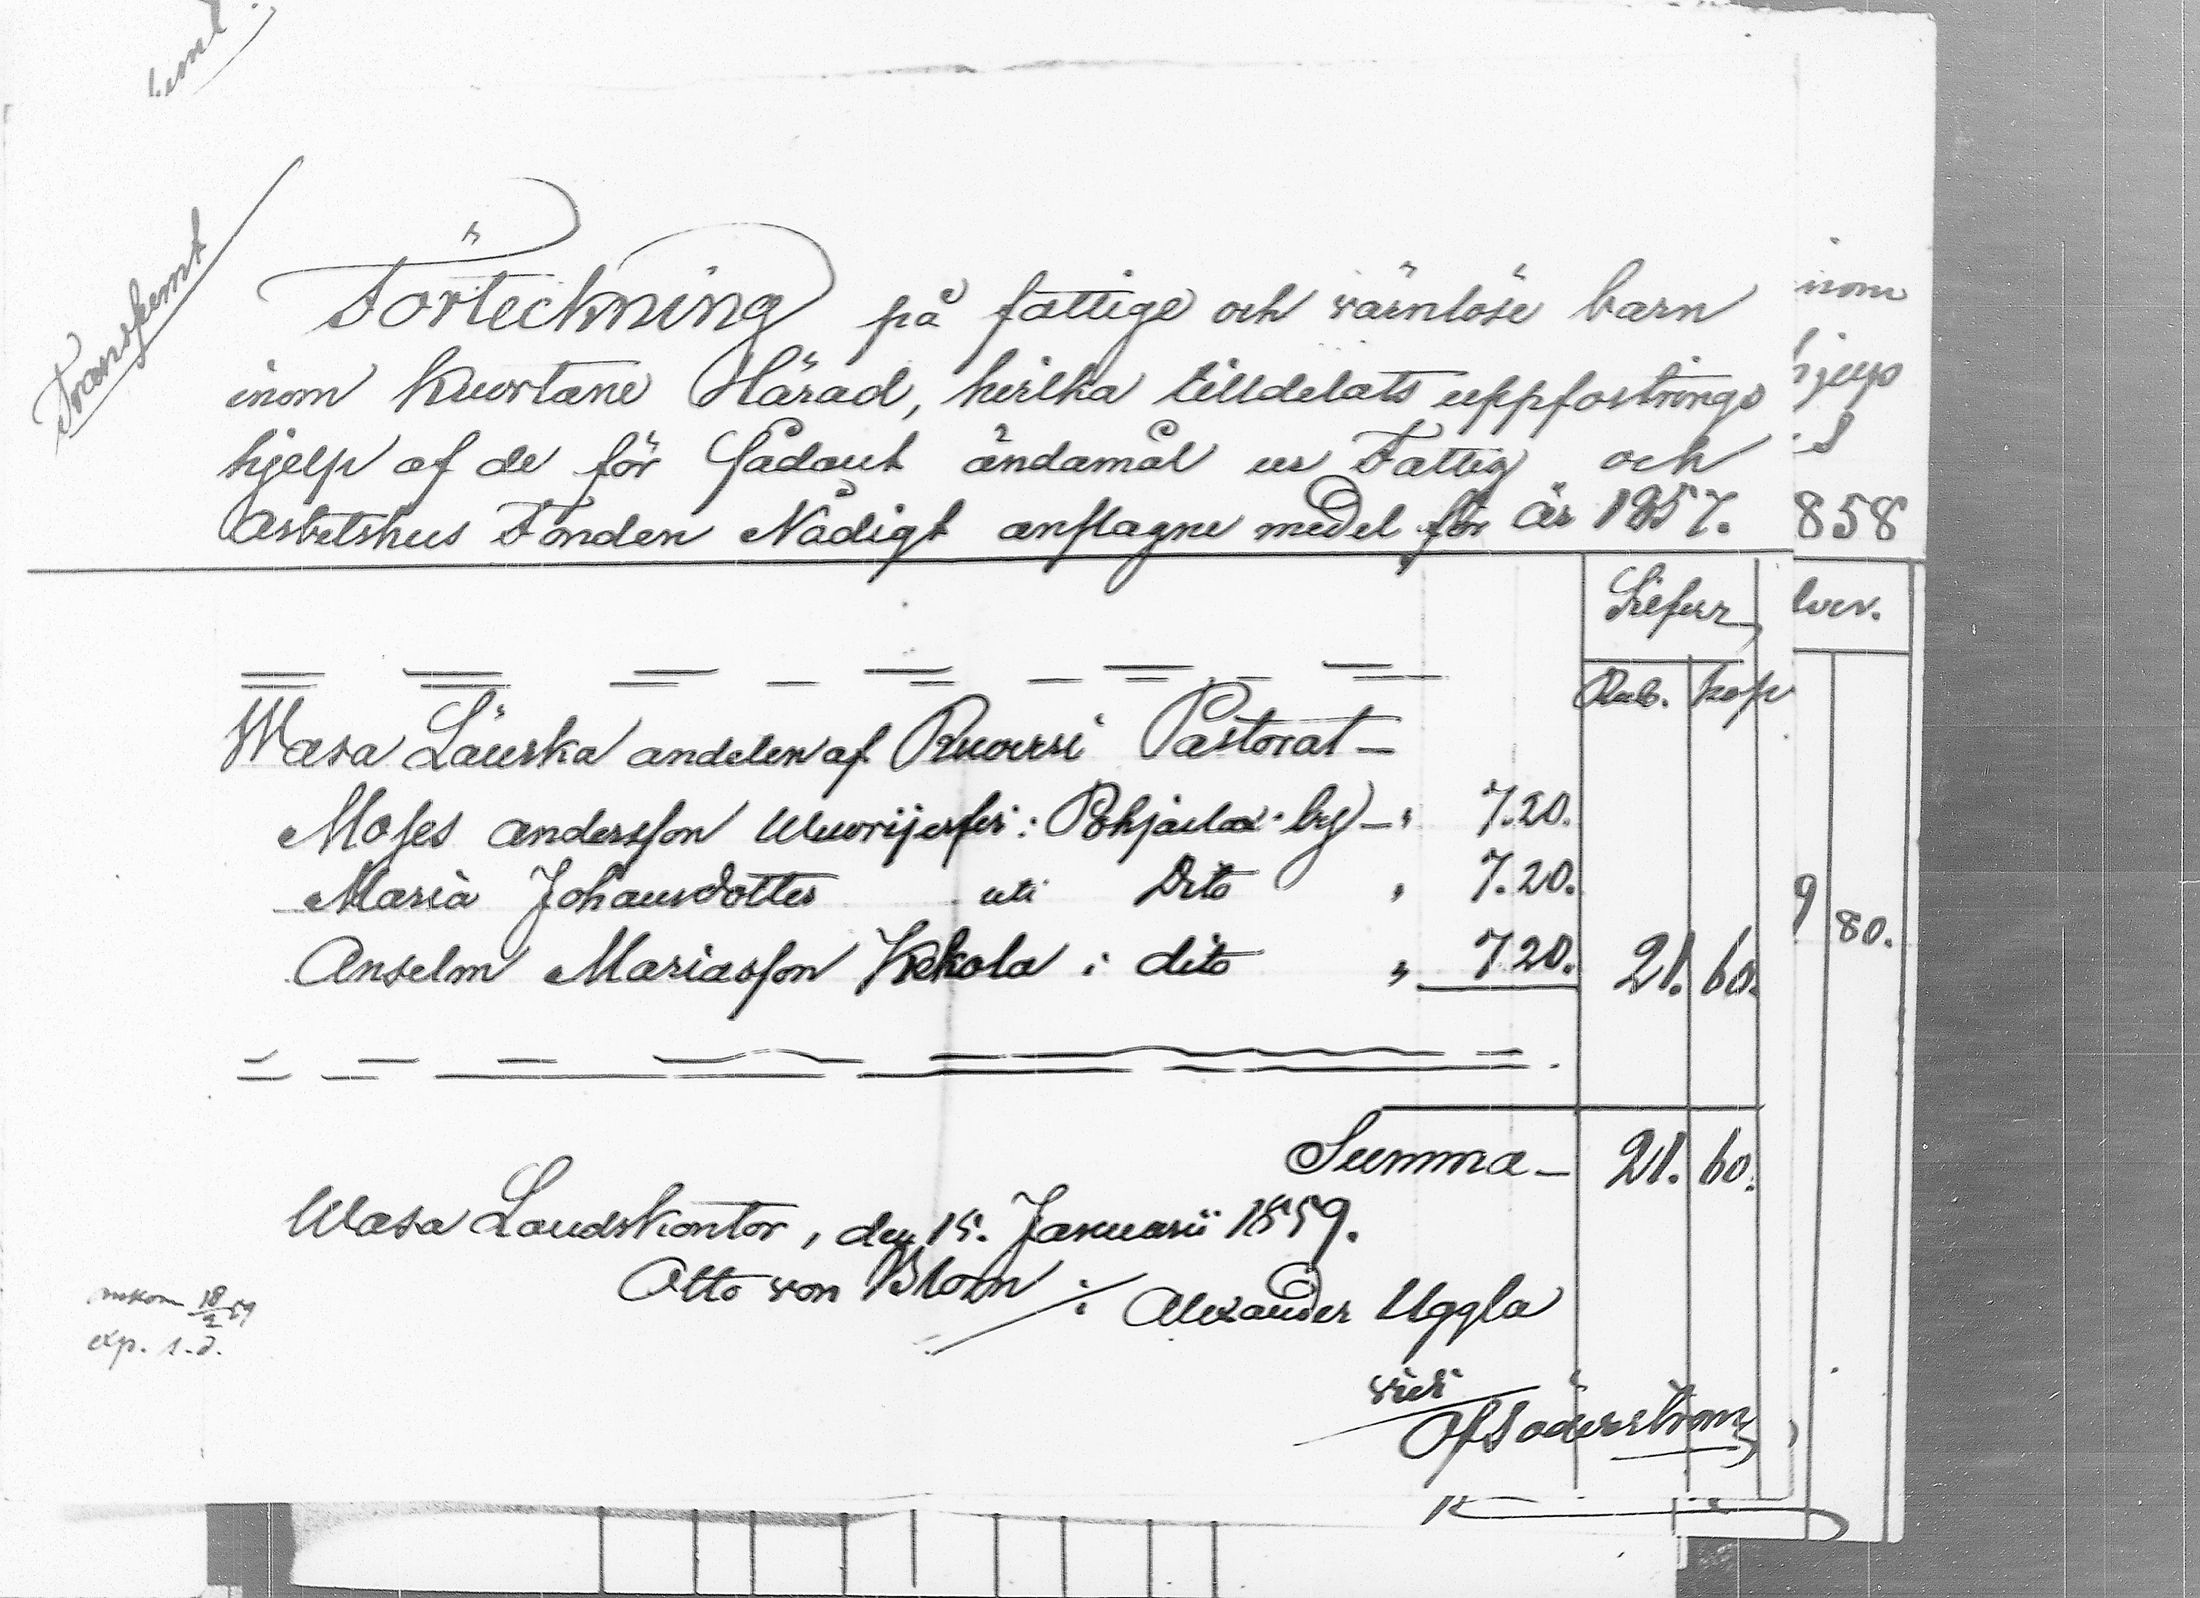 Transsumt
Förteckning på fattige och värnlöse barn
inom Kuortane Härad, hvilka tilldelats uppfostrings
hjelp af de för sådant ändamål ur Fattig och
Arbetshus Fonden Nådigt anslagne medel för år 1857.
Silfver
Rub. Kop
Wasa Länska andelen af Ruovesi Pastorat —
Moses Andersson Wuorijerfvi: Pohjaslax by — " 7.20.
Maria Johansdotter uti Dito " 7.20.
Anselm Mariasson Kekola i dito " 7.20. 21. 60.
Summa — 21. 60.
Wasa Landskontor, den 15. Januarii 1859.
Otto von Blom ./. Alexander Uggla
vidi
Söderström
inkom 18/2 59
exp. s. d.
inom
hjelp
858
lver.
9 80.